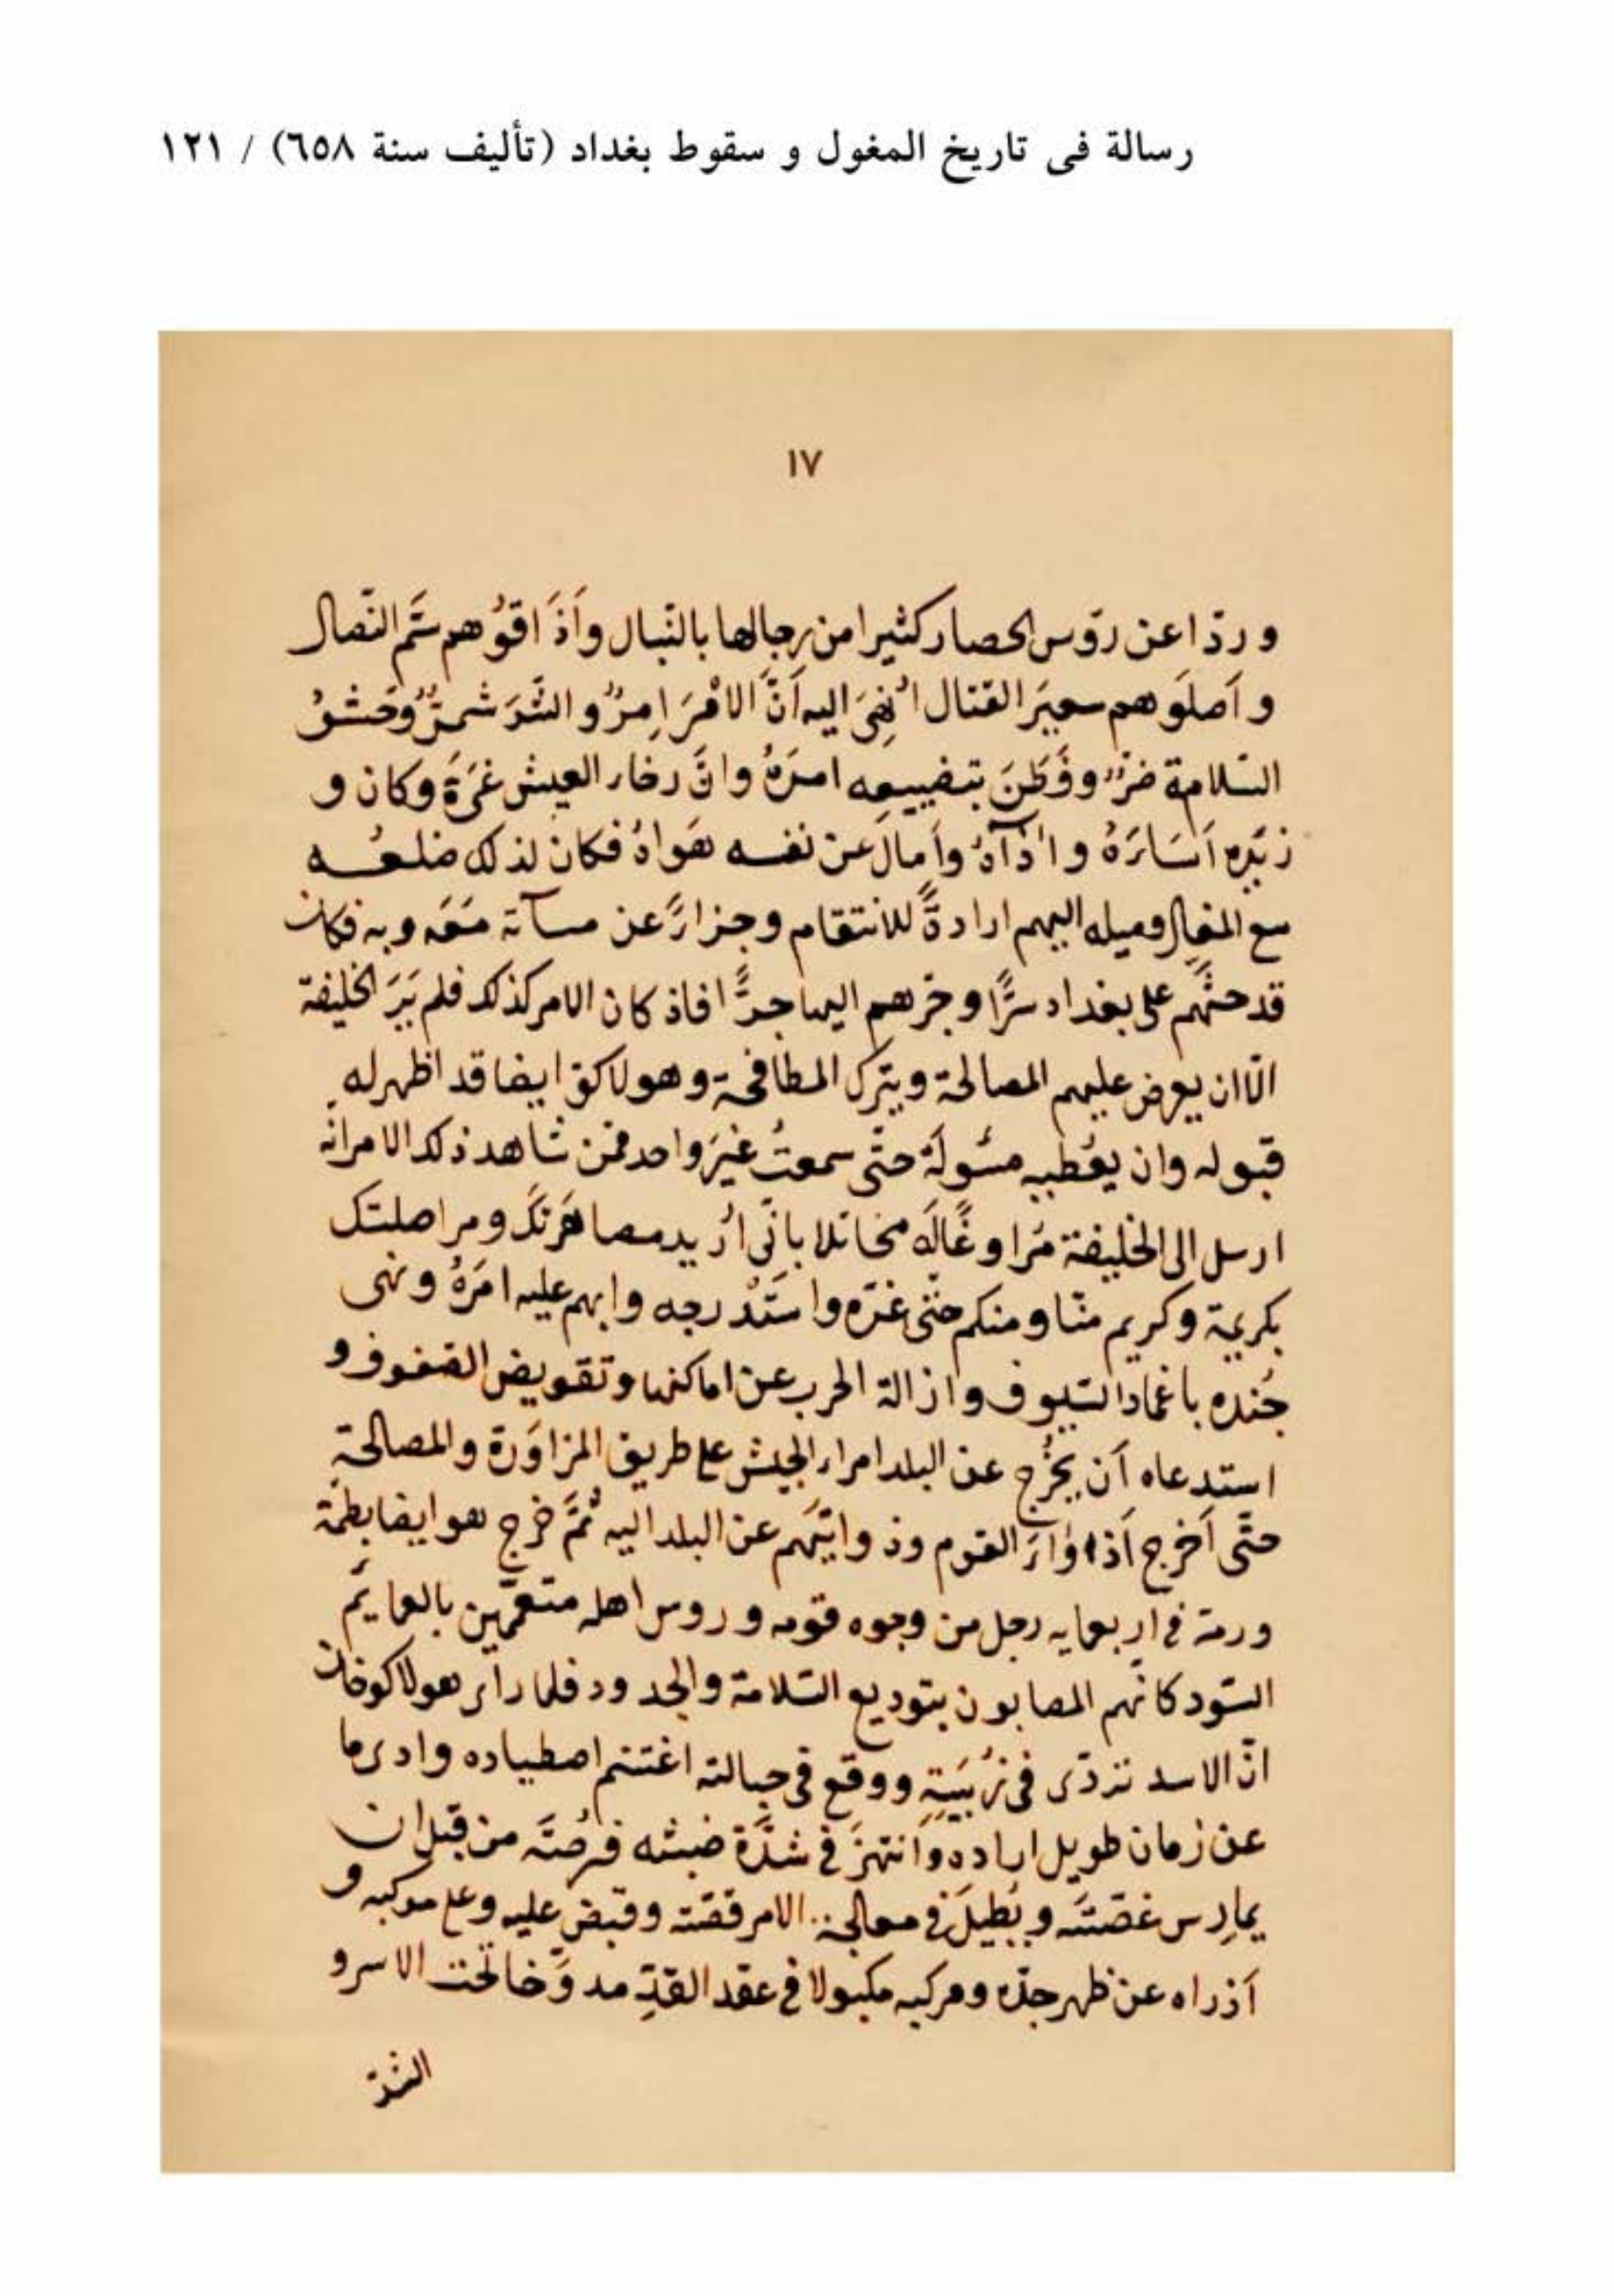 رسالة فى تاريخ المغول و سقوط بغداد (تأليف سنة ٦٥٨) / ١٢١
١٧
و ردّا عن رؤس الحصار كثيرا من رجالها بالنّبال و أذَاقوُهم سَّم النّصال
و أصلَوهم سعيَر القتال اُنهِىَ اليه أنَّ الامْرَ اِمرٌ و الشّرَ شمرٌّ وخشوُ
السّلامة ضرٌّ وفَطِنَ بتضييعِه امرَهُ وانَّ رخاء العيش غَرَّهَ وكان و
زيَره أسَاءَهُ واٰذآهُ وأمالَ عن نفسه هَواهُ فكان لذلك ضلعُه
مع المغال وميله اليهم ارادةً للانتقام وجزاءً عن مسآءة مَسَّهَ به فكان
قد حثَّهم على بغداد سرًّا وجرّهم اليها جرًّا فاذ كان الامر كذلك فلم يَرَ الخليفة
الّا ان يعرض عليهم المصالحة ويترك المطافحة وهولاكو ايضا قد اظهر له
قبوله وان يعُطيه مسُولَهَ حتّى سمعتُ غيَر واحد ممّن شاهد ذلك الامر انّه
ارسل الى الخليفة مُراوغًا لَه مخاتلا بانّى اُريد مصاهَرتَكَ ومراصلتك
بكريمة وكريم منّا ومنكم حتّى غرّه واستَدْرجه وابهم عليه امَرهُ ونهى
جُنده باغماد السّيوف وازالة الحرب عن اماكنها وتقويض الصّفوف و
استدعاه أن يُخرُج عن البلد امراء الجيش على طريق المزاوَرة والمصالحةِ
حتَّى أخرج أذوَاءَ القوم وذوايَبهم عن البلد اليه ثُمَّ خرج هو ايضا بطمّه
ورمّه فى اربعمايه رجل من وجوه قومه و روس اهله متعمّمين بالعمايَم
السّود كانّهم المصابون بتوديع السّلامة والجدود فلما رأى هولاكوخان
انّ الاسد تردّى فى زُبيَةٍ ووقع فى حبالته اغتنم اصطياده وادرى ما
عن زمان طويل اراده وَانتهزَ فى شدَّة ضبثه فرُصتَه من قبل ان
يمارِس غصّتَه ويُطيلَ فى معالجة الامر قصّته وقبَض عليه وعلى موكبه و
أذراه عن ظهر جدّه ومركبه مكبولا فى عقد القدِّ مدوَّخا تحت الاسر و
الشدّ